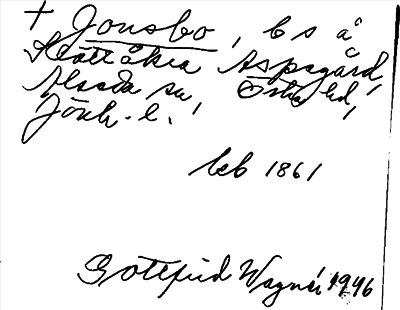 + Jonsbo, b s å
Slättåkra Aspagård,
Alseda sn, Östra hd,
Jönk. l.
beb 1861
Gotfrid Wagnér 1946